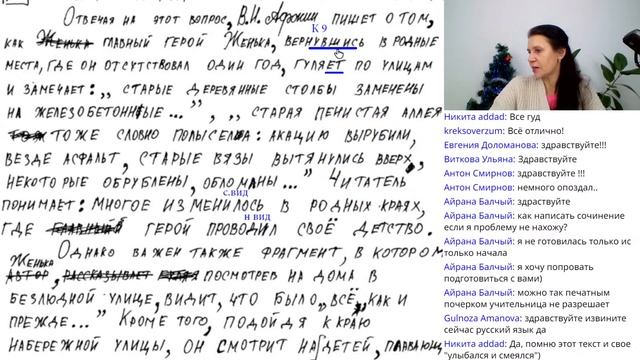 Отвечая на этот вопрос, В.И. Афонин пишет о том,
К 9
как Женька главный герой Женька, вернувшись в родные
места, где он отсутствовал один год, гуляет по улицам
и замечает: „ старые деревянные столбы заменены
на железобетонные...", „ старая пенистая аллея
тоже словно полысела: акацию вырубили,
везде асфальт, старые вязы вытянулись вверх,
некоторые обрублены, обломаны..." Читатель
с.вид
понимает: многое изменилось в родных краях,
н вид
где главный герой проводил своё детство.
Однако важен также фрагмент, в котором
Женька
автор, рассказывает посмотрев на дома в
безлюдной улице, видит, что было „всё, как и
прежде..." Кроме того, подойдя к краю
набережной улицы, он смотрит на детей, плавающ
Никита addad: Все гуд
kreksoverzum: Всё отлично!
Евгения Доломанова: здравствуйте!!!
Виткова Ульяна: Здравствуйте
Антон Смирнов: здравствуйте !!!
Антон Смирнов: немного опоздал..
Айрана Балчый: здраствуйте
Айрана Балчый: как написать сочинение
если я проблему не нахожу?
Айрана Балчый: я не готовилась только ис
только начала
Айрана Балчый: я хочу попровать
подготовиться с вами)
Айрана Балчый: можно так печатным
почерком учительница не разрешает
Gulnoza Amanova: здравствуйте извините
сейчас русский язык да
Никита addad: Да, помню этот текст и свое
"улыбался и смеялся")